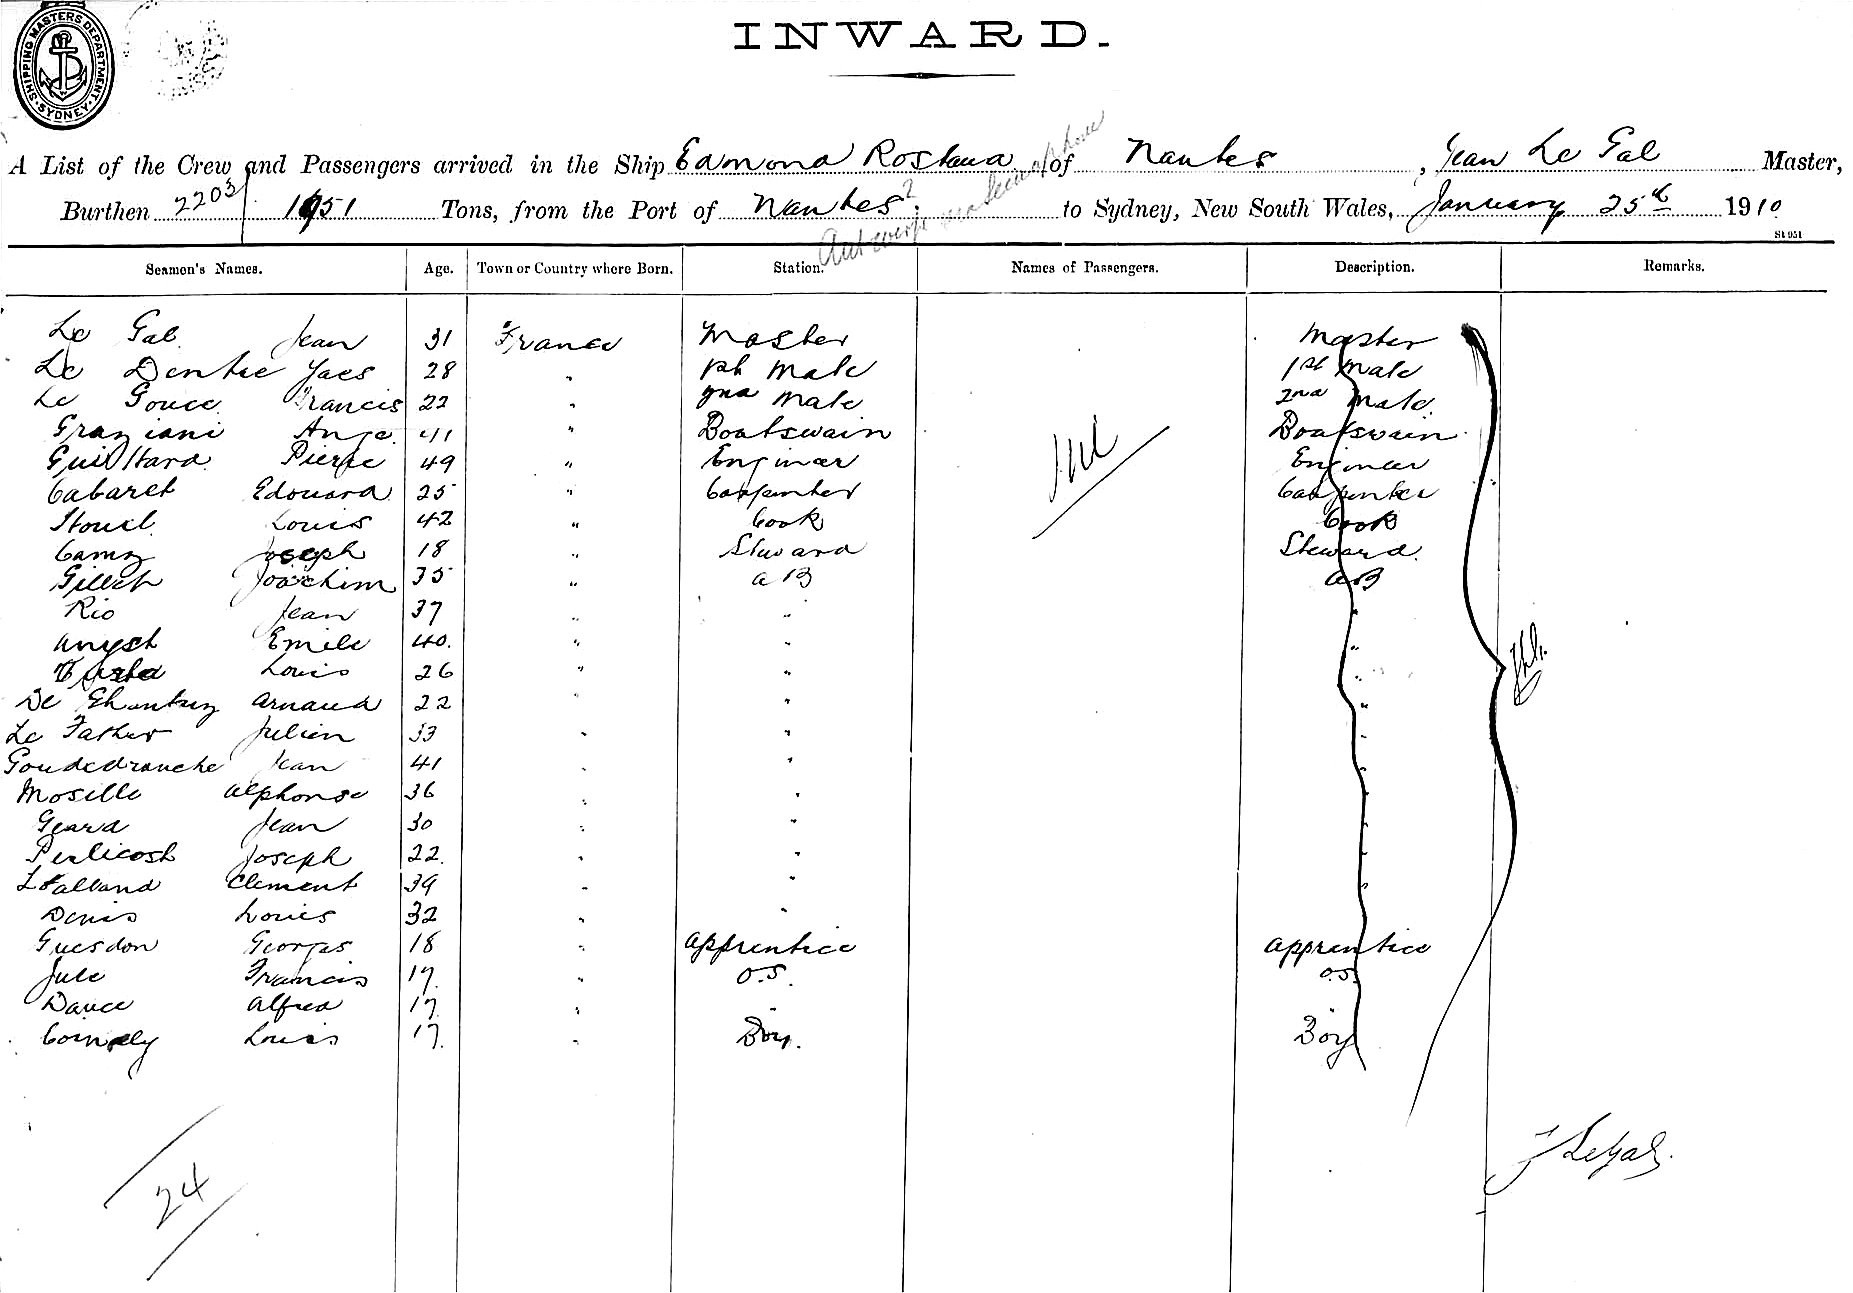 SHIPPING MASTERS DEPARTMENT · SYDNEY ·
INWARD.
A List of the Crew and Passengers arrived in the Ship Edmond Rostand of Nantes, Jean Le Gal Master,
Burthen 2203 / 1951 Tons, from the Port of Nantes? to Sydney, New South Wales, January 25th 1910
Antwerp
St 951
Seamen's Names. Age. Town or Country where Born. Station. Names of Passengers. Description. Remarks.
Le Gal Jean 31 France Master Master
Le Dentec Yves 28 " 1st Mate 1st Mate
Le Gouec Francis 22 " 2nd Mate 2nd Mate
Graziani Ange 41 " Boatswain Nil Boatswain
Guillard Pierre 49 " Engineer Engineer
Cabaret Edouard 25 " Carpenter Carpenter
Houel Louis 42 " Cook Cook
Camy Joseph 18 " Steward Steward
Gillet Joachim 35 " AB AB
Rio Jean 37 " " "
Emile 40 " " "
Louis 26 " " "
De Arnaud 22 " " "
Le Father Julien 33 " " "
Goudedranche Jean 41 " " "
Moselle Alphonse 36 " " "
Geard Jean 30 " " "
Joseph 22 " " "
Clement 39 " " "
Denis Louis 32 " "
Guesdon Georges 18 " Apprentice Apprentice
Jule Francis 17 " O.S. O.S.
Alfred 17 " " "
Louis 17 " Boy. Boy
J LeGal
24